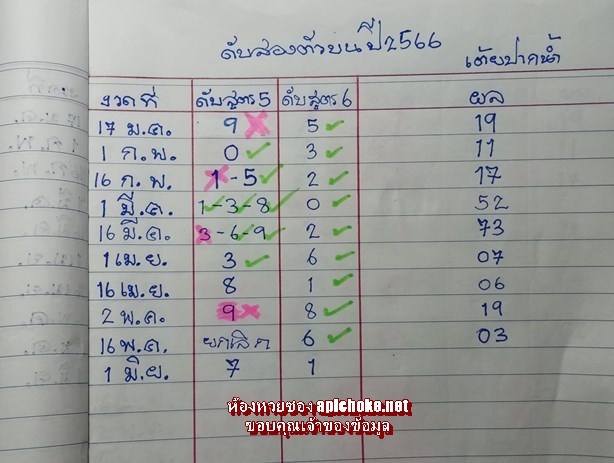 ดับสองตัวบนปี2566
เต้ยปากน้ำ
งวดที่ ดับสูตร5 ดับสูตร6 ผล
17 ม.ค. 9 5 19
1 ก.พ. 0 3 11
16 ก.พ. 1-5 2 17
1 มี.ค. 1-3-8 0 52
16 มี.ค. 3-6-9 2 73
1 เม.ย. 3 6 07
16 เม.ย. 8 1 06
2 พ.ค. 9 8 19
16 พ.ค. ยกเลิก 6 03
1 มิ.ย. 7 1
ห้องหวยซอง apichoke.net
ขอบคุณเจ้าของข้อมูล